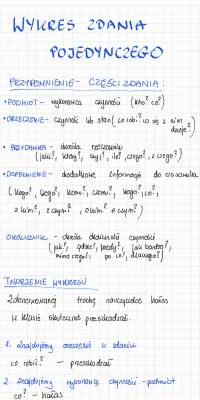 WYKRES ZDANIA
POJEDYNCZEGO
PRZYPOMNIENIE - CZĘŚCI ZDANIA:
• PODMIOT - wykonawca czynności (kto? co?)
• ORZECZENIE - czynność lub stan (co robi? co się z nim
dzieje?)
• PRZYDAWKA - określa rzeczownik
(jaki?, który?, czyj?, ile?, czego?, z czego?)
• DOPEŁNIENIE - dodatkowe informacje do
(kogo?, czego?, komu?, czemu?, kogo?, co?,
z kim?, z czym?, o kim? o czym?)
OKOLICZNIK - określa czynności
(jak?, gdzie?, kiedy?, jak bardzo?,
mimo czego?, po co?, dlaczego?)
TWORZENIE WYKRESU
Zdenerwowanej trochę nauczycielce hałas
w klasie skutecznie przeszkadzał.
1. znajdujemy orzeczenie w zdaniu
co robił? - przeszkadzał
2. znajdujemy wykonawcę czynności - podmiot
co? - hałas